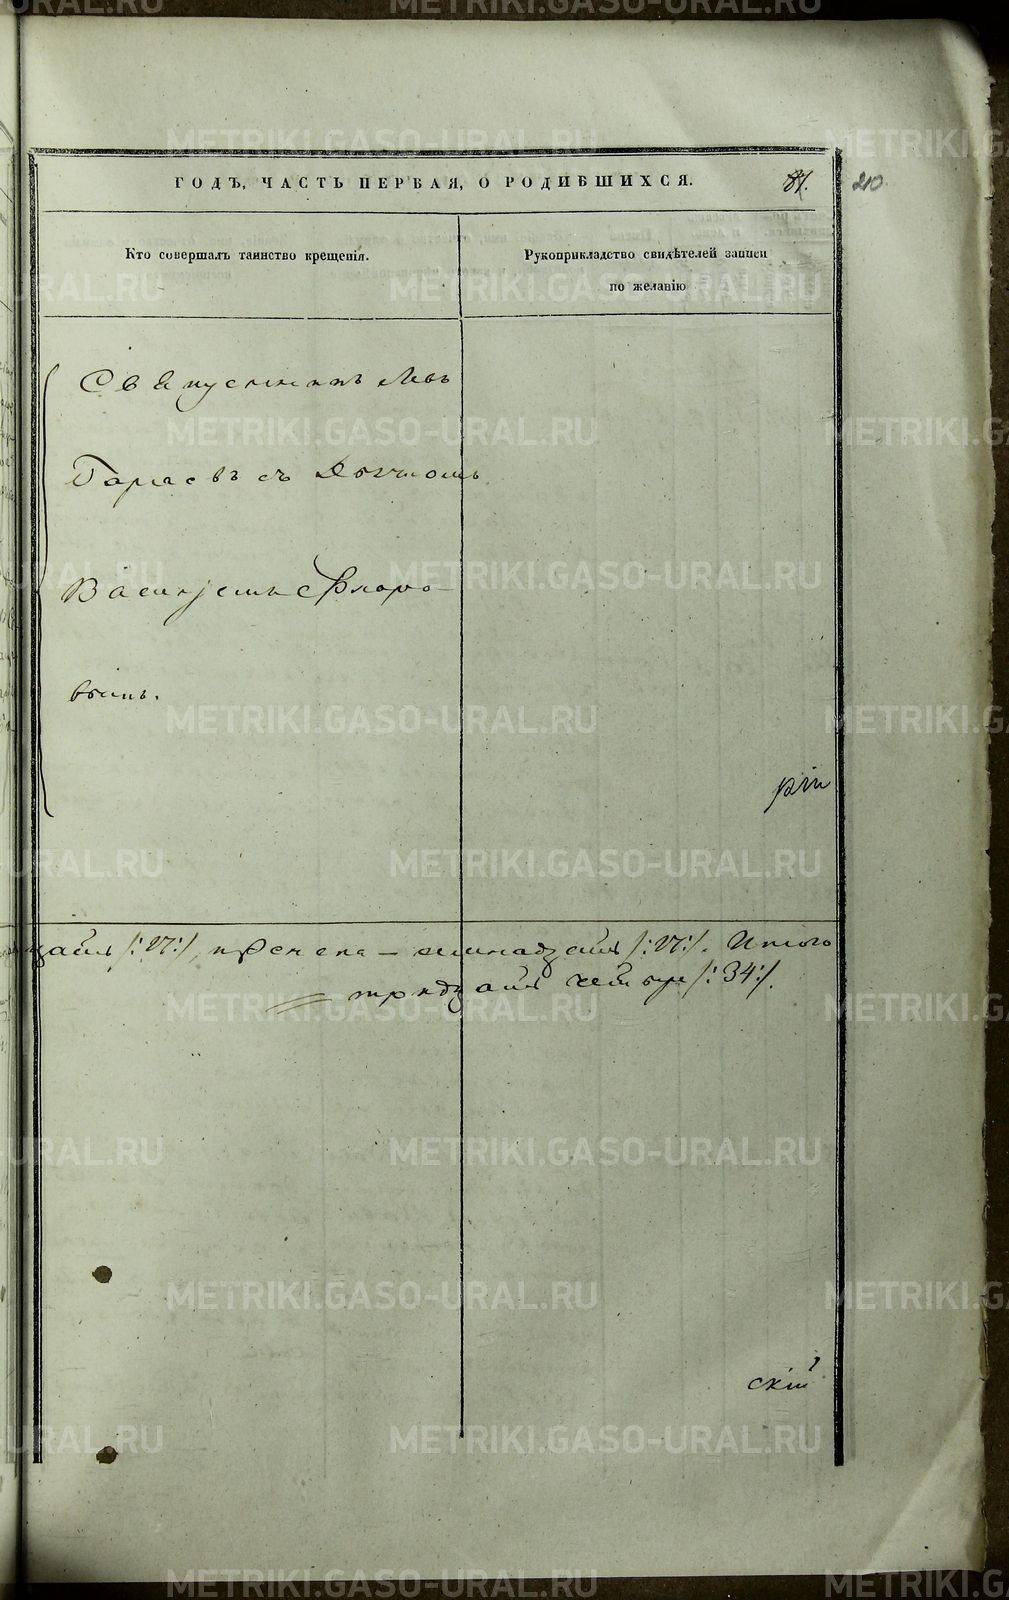 ГОДЪ, ЧАСТЬ ПЕРВАЯ, О РОДИВШИХСЯ.
87. 210
Кто совершалъ таинство крещенія.
Рукоприкладство свидѣтелей записи
по желанію
Священникъ Левъ
Тарасовъ съ Дьячкомъ
Василіемъ Флоро-
вымъ.
рій
/:17:/, женска – семнадцать /:17:/. Итого
тридцать четыре /:34:/.
скій
METRIKI.GASO-URAL.RU